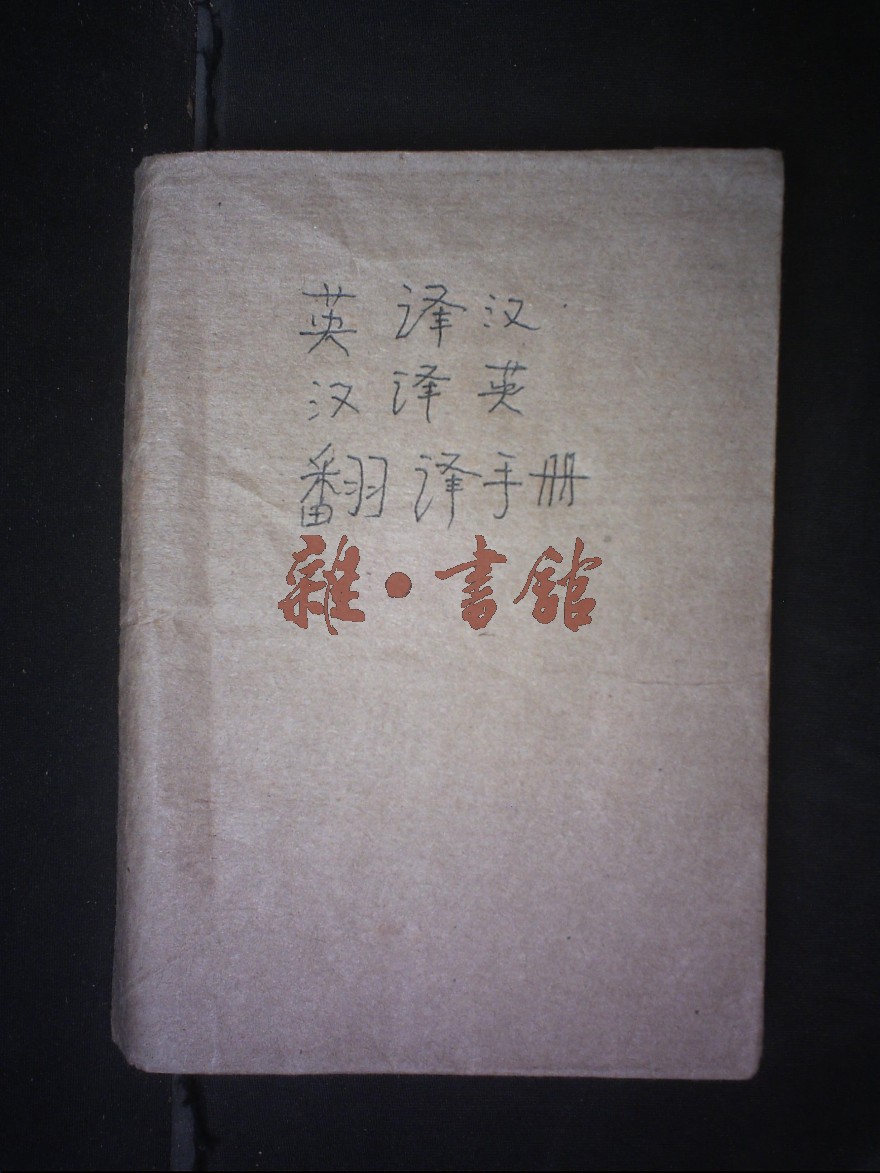 英译汉
汉译英
翻译手册
雜·書館